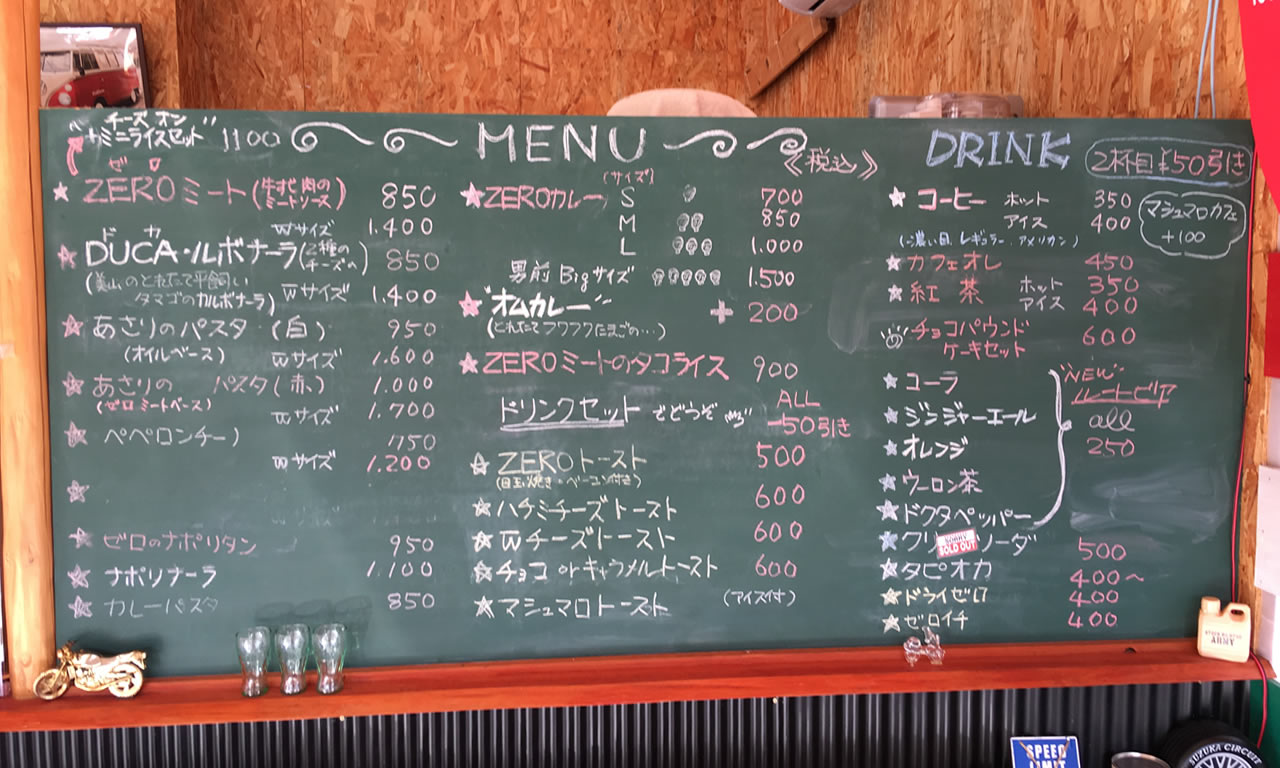 チーズ オン
ミニライスセット 1100
MENU
《税込》
ゼロ
★ ZEROミート(牛すじ肉のミートソース) 850
Wサイズ 1.400
ドカ
★ DUCA・ルボナーラ(2種のチーズの) 850
(美山のとれたて平飼い
タマゴのカルボナーラ) Wサイズ 1.400
★ あさりのパスタ (白) 950
(オイルベース) Wサイズ 1.600
★ あさりの パスタ(赤) 1.000
(ゼロミートベース) Wサイズ 1.700
★ ペペロンチーノ 750
Wサイズ 1.200
★
★ ゼロのナポリタン 950
★ ナポリナーラ 1.100
★ カレーパスタ 850
(サイズ)
★ ZEROカレー S 700
M 850
L 1.000
男前 Bigサイズ 1.500
★ "オムカレー" + 200
(とれたてフワフワたまごの…)
★ ZEROミートのタコライス 900
ドリンクセット もどうぞ ALL
-50引き
★ ZEROトースト 500
(目玉焼き・ベーコン付き)
★ ハチミチーズトースト 600
★ Wチーズトースト 600
★ チョコ orキャラメルトースト 600
★ マシュマロトースト (アイス付)
DRINK
2杯目 ¥50引き
★ コーヒー ホット 350
アイス 400
マシュマロカフェ
+100
(濃い目, レギュラー, アメリカン)
★ カフェオレ 450
★ 紅茶 ホット 350
アイス 400
チョコパウンド
ケーキセット 600
★ コーラ
★ ジンジャーエール
★ オレンジ
★ ウーロン茶
★ ドクタペッパー
"NEW"
ルートビア
all
250
★ クリ ソーダ 500
SORRY
SOLD OUT
★ タピオカ 400〜
★ ドライゼロ 400
★ ゼロイチ 400
ARMY
SPEED
LIMIT
SUZUKA CIRCUIT